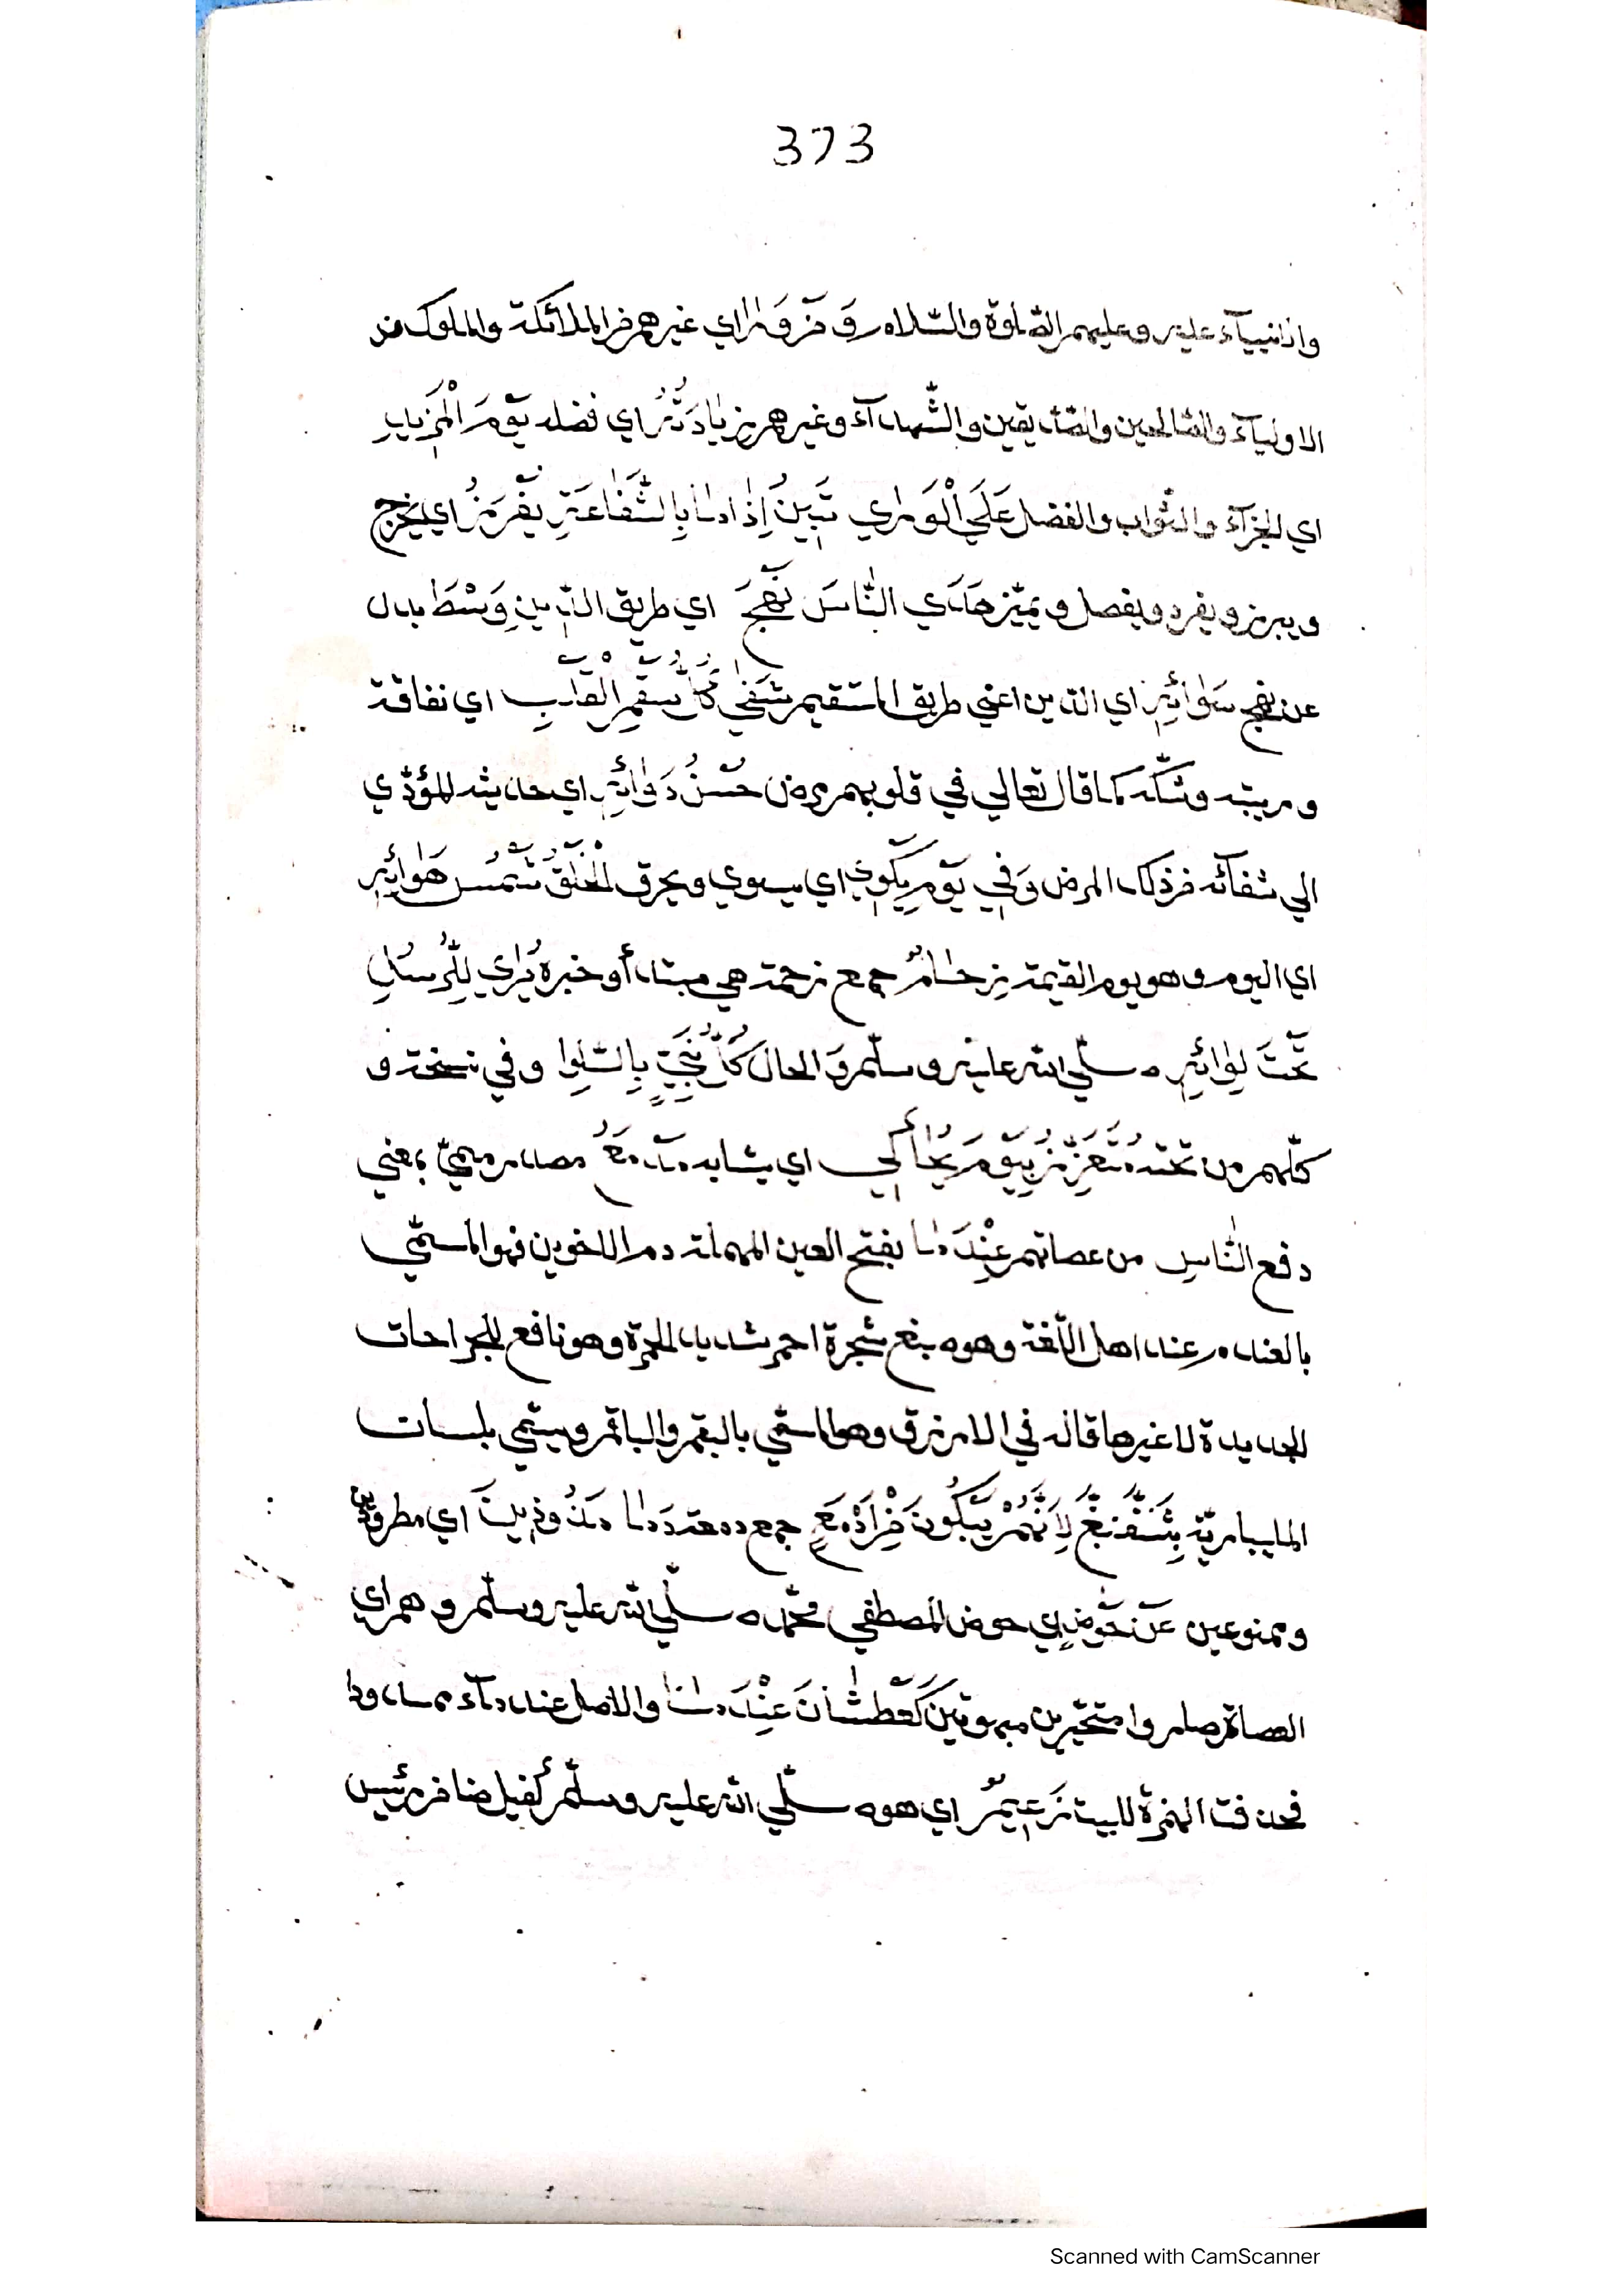 373
وانبيآء عليه وعليهم الصّلوة والسّلام وَمَزَوَرٰا اي غيرهم من الملائكة والملوك من
الاوليآء والصّالحين والصّدّيقين والشّهدآء وغيرهم زِيٰادَتُهُ اي فضله يَوْمَ الْجَزَاءِ
اي الجزآء والثّواب والفضل عَلَي الْوَرٰي تَبِينُ اِذٰا مٰا بِالشَّفٰاعَةِ يَفْرُزُ اي يخرج
ويبرز ويفرد ويفصل ويميّز هَدَي النّٰاسَ نَهْجَ اي طريق الدّين وَسْطَ بدل
عن نهج سَوٰائِهِ اي الدّين اعني طريق المستقيم شَفٰي كُلَّ سُقْمِ الْقَلْبِ اي نفاقة
وريبته وشكّه كما قال تعالي في قلوبهم مرض حُسْنُ دَوٰائِهِ اي حديثه المؤدّي
الي شفآئه من ذلك المرض وَفِي يَوْمِ يَكْوِي اي يسوي ويحرق الْخَلْقَ شَمْسُ هَوٰائِهِ
اي اليوم وهو يوم القيمة زِحٰامٌ جمع زحمة هي مبتدأ وخبره يُرٰي لِلرُّسُلِ
تَحْتَ لِوٰائِهِ صلّي الله عليه وسلّم وَالحال كُلُّ نَبِيٍّ بِاللِّوٰا وفي نسخة و
كلّهم من تحته مُتَعَزِّزُ بِيَوْمَ يُحٰاكِي اي يشابه مَدْمَعُ مصدر ميميّ بمعني
دفع النّٰاسِ من عصاتهم عَنْدَمٰا بفتح العين المهملة دم الاخوين فهو المسمّي
بالعندم عند اهل اللّغة وهو صبغ شجرة احمر شديد الحمرة وهو نافع للجراحات
الجديدة لا غيرها قاله في الازرق وهو المسمّي بالبقم والباقم ويسمّي بلسان
المليباريّة بِشَفَّنْغَّ لِاَنَّهُمْ يَبْكُونَ مِنْ اَدْمَعٍ جمع دمعة دَمٰا مَذُوذِينَ اي مطرودين
وممنوعين عَنْ حَوْضٍ اي حوض المصطفي محمّد صلّي الله عليه وسلّم وهم اي
العصاة صاروا متحيّرين مبهوتين كَعَطْشٰانَ عِنْدَمٰا والاصل عند مآء ممدودا
فحذفت الهمزة للبيت زَعِيمٌ اي هو صلّي الله عليه وسلّم كفيل ضامن رئيس
Scanned with CamScanner